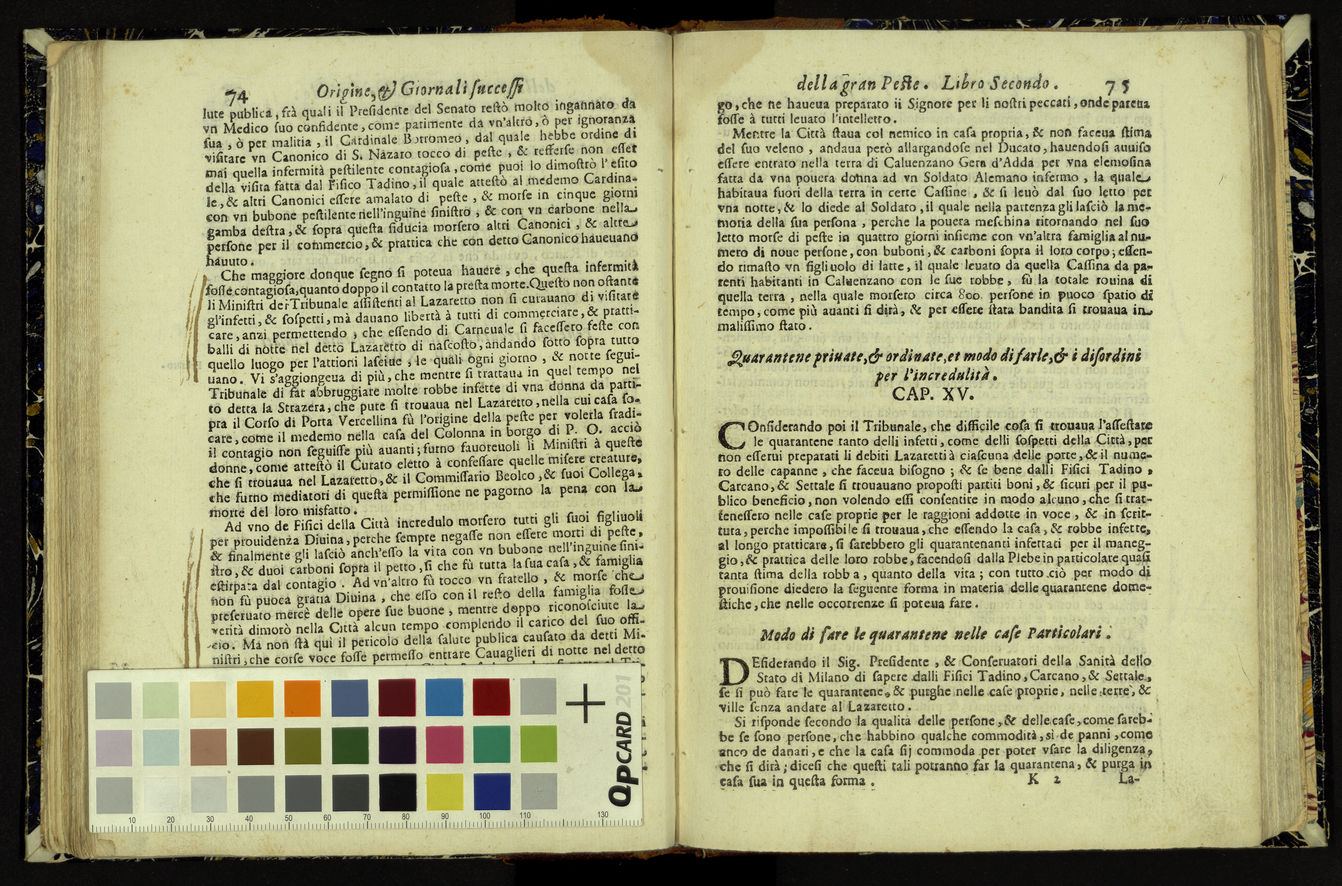 74 Origine, & Giornali successi
lute publica, frà quali il Presidente del Senato restò molto ingannato da
vn Medico suo confidente, come parimente da vn'altro, ò per ignoranza
sua, ò per malitia, il Cardinale Borromeo, dal quale hebbe ordine di
visitare vn Canonico di S. Nazaro tocco di peste, & refferse non esser
mai quella infermità pestilente contagiosa, come puoi lo dimostrò l'esito
della visita fatta dal Fisico Tadino, il quale attestò al medemo Cardina-
le, & altri Canonici essere amalato di peste, & morse in cinque giorni
con vn bubone pestilente nell'inguine sinistro, & con vn carbone nella
gamba destra, & sopra questa fiducia morsero altri Canonici, & altre
persone per il commercio, & prattica che con detto Canonico haueuano
hauuto.
Che maggiore donque segno si poteua hauere, che questa infermità
fosse contagiosa, quanto doppo il contatto la presta morte. Questo non ostante
li Ministri del Tribunale assistenti al Lazaretto non si curauano di visitare
gl'infetti, & sospetti, mà dauano libertà à tutti di commerciare, & pratti-
care, anzi permettendo, che essendo di Carneuale si facessero feste con
balli di notte nel detto Lazaretto di nascosto, andando sotto sopra tutto
quello luogo per l'attioni lasciue, le quali ogni giorno, & notte segui-
uano. Vi s'aggiongeua di più, che mentre si trattaua in quel tempo nel
Tribunale di far abbruggiare molte robbe infette di vna donna da parti-
to detta la Strazera, che pure si trouaua nel Lazaretto, nella cui casa so-
pra il Corso di Porta Vercellina fù l'origine della peste per volerla sradi-
care, come il medemo nella casa del Colonna in borgo di P. O. acciò
il contagio non seguisse più auanti; furno fauoreuoli li Ministri à queste
donne, come attestò il Curato eletto à confessare quelle misere creature,
che si trouaua nel Lazaretto, & il Commissario Beolco, & suoi Collega,
che furno mediatori di questa permissione ne pagorno la pena con la
morte del loro misfatto.
Ad vno de Fisici della Città incredulo morsero tutti gli suoi figliuoli
per prouidenza Diuina, perche sempre negasse non essere morti di peste,
& finalmente gli lasciò anch'esso la vita con vn bubone nell'inguine sini-
stro, & duoi carboni sopra il petto, si che fù tutta la sua casa, & famiglia
estirpata dal contagio. Ad vn'altro fù tocco vn fratello, & morse che
non fù puoca gratia Diuina, che esso con il resto della famiglia fosse
preseruato mercè delle opere sue buone, mentre doppo riconosciute la
verità dimorò nella Città alcun tempo complendo il carico del suo offi-
cio. Ma non stà qui il pericolo della salute publica causato da detti Mi-
nistri, che corse voce fosse permesso entrare Cauaglieri di notte nel detto
della gran Peste. Libro Secondo. 75
go, che ne haueua preparato il Signore per li nostri peccati, onde pareua
fosse à tutti leuato l'intelletto.
Mentre la Città staua col nemico in casa propria, & non faceua stima
del suo veleno, andaua però allargandose nel Ducato, hauendosi auuiso
essere entrato nella terra di Caluenzano Gera d'Adda per vna elemosina
fatta da vna pouera donna ad vn Soldato Alemano infermo, la quale
habitaua fuori della terra in certe Cassine, & si leuò dal suo letto per
vna notte, & lo diede al Soldato, il quale nella partenza gli lasciò la me-
moria della sua persona, perche la pouera meschina ritornando nel suo
letto morse di peste in quattro giorni insieme con vn'altra famiglia al nu-
mero di noue persone, con buboni, & carboni sopra il loro corpo; essen-
do rimasto vn figliuolo di latte, il quale leuato da quella Cassina da pa-
renti habitanti in Caluenzano con le sue robbe, fù la totale rouina di
quella terra, nella quale morsero circa 800. persone in puoco spatio di
tempo, come più auanti si dirà, & per essere stata bandita si trouaua in
malissimo stato.
Quarantene priuate, & ordinate, et modo di farle, & i disordini
per l'incredulità.
CAP. XV.
COnsiderando poi il Tribunale, che difficile cosa si trouaua l'assestare
le quarantene tanto delli infetti, come delli sospetti della Città, per
non esserui preparati li debiti Lazaretti à ciascuna delle porte, & il nume-
ro delle capanne, che faceua bisogno; & se bene dalli Fisici Tadino,
Carcano, & Settali si trouauano proposti partiti boni, & sicuri per il pu-
blico beneficio, non volendo essi consentire in modo alcuno, che si trat-
tenessero nelle case proprie per le raggioni addotte in voce, & in scrit-
tura, perche impossibile si trouaua, che essendo la casa, & robbe infette,
al longo pratticare, si sarebbero gli quarantenanti infettati per il maneg-
gio, & prattica delle loro robbe, facendosi dalla Plebe in particolare quasi
tanta stima della robba, quanto della vita; con tutto ciò per modo di
prouisione diedero la seguente forma in materia delle quarantene dome-
stiche, che nelle occorrenze si poteua fare.
Modo di fare le quarantene nelle case Particolari.
DEsiderando il Sig. Presidente, & Conseruatori della Sanità dello
Stato di Milano di sapere dalli Fisici Tadino, Carcano, & Settale,
se si può fare le quarantene, & purghe nelle case proprie, nelle terre, &
ville senza andare al Lazaretto.
Si risponde secondo la qualità delle persone, & delle case, come sareb-
be se sono persone, che habbino qualche commodità, sì de panni, come
anco de danari, e che la casa sij commoda per poter vsare la diligenza,
che si dirà; dicesi che questi tali potranno far la quarantena, & purga in
casa sua in questa forma.
K 2 La-
QPCARD 201
10 20 30 40 50 60 70 80 90 100 110 130